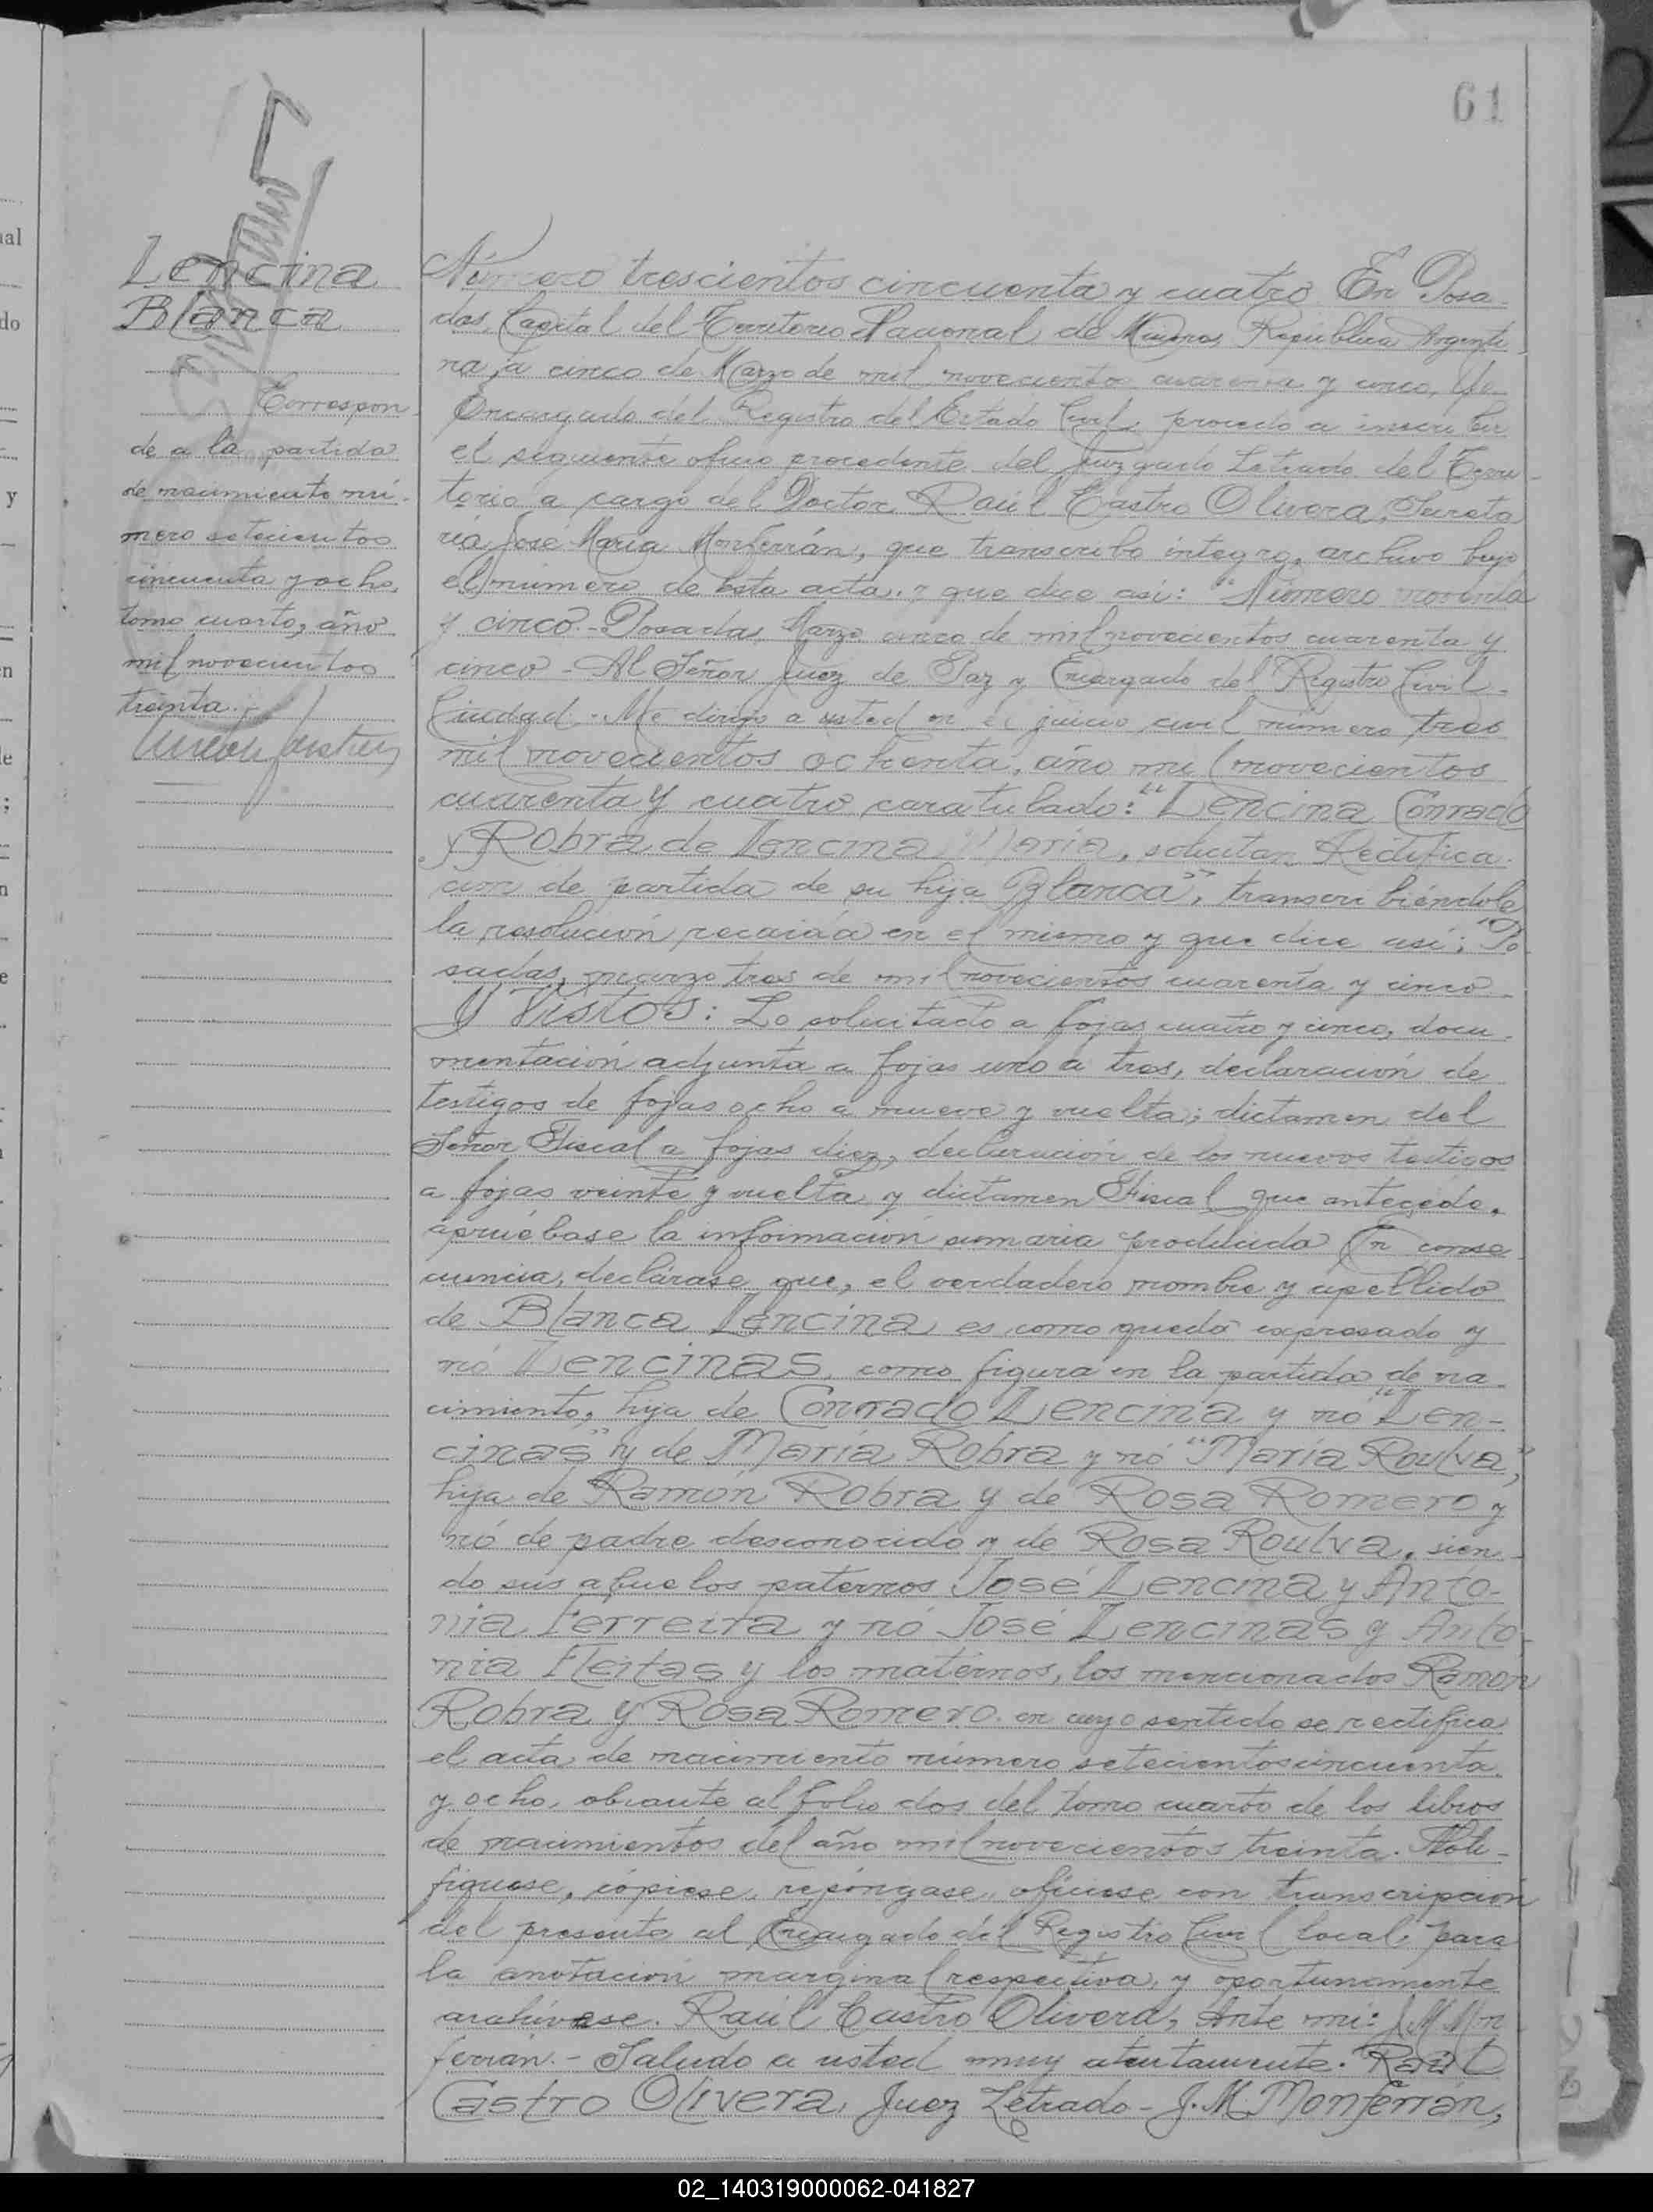 61
Lencina
Blanca
Correspon
de a la partida
de nacimiento nú-
mero setecientos
cincuenta y ocho,
tomo cuarto, año
mil novecientos
treinta.-
Número trescientos cincuenta y cuatro En Posa
das, Capital del Territorio Nacional de Misiones, República Argenti
na, a cinco de Marzo de mil novecientos cuarenta y cinco, Yo
Encargado del Registro del Estado Civil, procedo a inscribir
el siguiente oficio procedente del Juzgado Letrado del Terri
torio a cargo del Doctor Raúl Castro Olivera, Secreta
ría José María Monferrán, que transcribo íntegro, archivo bajo
el número de ésta acta y que dice así: "Número noventa
y cinco - Posadas, Marzo cinco de mil novecientos cuarenta y
cinco - Al Señor Juez de Paz y Encargado del Registro Civil -
Ciudad - Me dirijo a usted en el juicio civil número tres
mil novecientos ochenta, año mil novecientos
cuarenta y cuatro caratulado: "Lencina Conrado
y Robra de Lencina María, solicitan Rectifica-
cion de partida de su hija Blanca", transcribiéndole
la resolución recaída en el mismo y que dice así: "Po
sadas, marzo tres de mil novecientos cuarenta y cinco -
Y Vistos: Lo solicitado a fojas cuatro y cinco, docu-
mentación adjunta a fojas uno a tres, declaración de
testigos de fojas ocho a nueve y vuelta; dictamen del
Señor Fiscal a fojas diez, declaración de los nuevos testigos
a fojas veinte y vuelta y dictamen Fiscal que antecede,
apruébase la información sumaria producida En conse
cuencia, declárase que, el verdadero nombre y apellido
de Blanca Lencina es como queda expresado y
nó Lencinas, como figura en la partida de na-
cimiento, hija de Conrado Lencina y nó "Len-
cinas" y de María Robra y nó "María Roulva",
hija de Ramón Robra y de Rosa Romero y
nó de padre desconocido y de Rosa Roulva, sien-
do sus abuelos paternos José Lencina y Anto-
nia Ferreira y nó José Lencinas y Anto-
nia Fleitas y los maternos, los mencionados Ramon
Robra y Rosa Romero. en cuyo sentido se rectifica
el acta de nacimiento número setecientos cincuenta
y ocho, obrante al folio dos del tomo cuarto de los libros
de nacimientos del año mil novecientos treinta. Noti-
fíquese, cópiese, repóngase, ofíciese con transcripción
del presente al Encargado del Registro Civil local para
la anotación marginal respectiva, y oportunamente
archívese. Raúl Castro Olivera, Ante mí: J. M. Mon
ferrán.- Saludo a usted muy atentamente. Raúl
Castro Olivera, Juez Letrado - J. M. Monferrán,
02_140319000062-041827